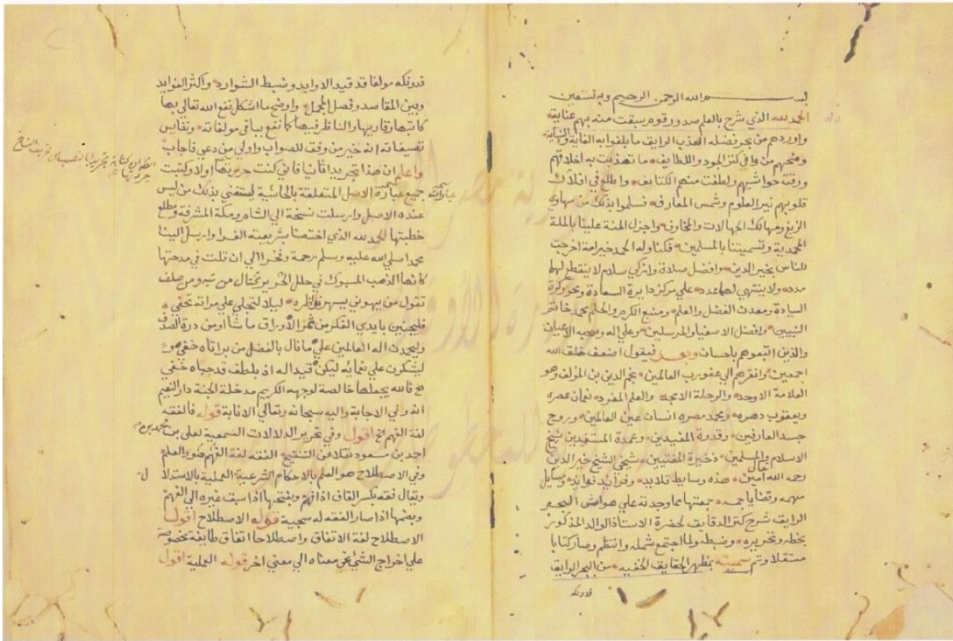 بسم الله الرحمن الرحيم وبه نستعين
الحمد لله الذي شرح بالعلم صدور قوم سبقت منه بهم عناية
واوردهم من بحر فضله العذب الرايق ما بلغوا به الغاية والنهاية
ومنحهم من وافي كنز الجود واللطايف ما تهذبت به اخلاقهم
ورقت حواشيهم ولطفت منهم الكثايف واطلع في افلاك
قلوبهم نير العلوم وشمس المعارف فسلموا بذلك من مهاوي
الزيغ ومهالك الجهالات والمخاوف واجزل المنة علينا بالملة
المحمدية وتسميتنا بالمسلمين فكنا وله الحمد خير امة اخرجت
للناس بخير الدين وافضل صلاة وازكي سلام لا ينقطع لهما
مدد ولا ينتهي لهما عدد علي مركز دايرة السعادة ومحور كرة
السيادة ومعدن الفضل والعلم ومنبع الكرم والحلم محمد خاتم
النبيين وافضل الاصفيا والمرسلين وعلي اله وصحبه الاعيان
والذين اتبعوهم باحسان وبعد فيقول اضعف خلق الله
اجمعين وافقرهم الي عفو رب العالمين نجم الدين بن المؤلف وهو
العلامة الاوحد والرحلة الامجد والعلم المفرد نعمان عصره
ويعقوب دهره ومحمد مصره انسان عين العالمين وروح
جسد العارفين وقدوة المفيدين وعمدة المستفيدين شيخ
الاسلام والمسلمين ذخيرة المفتيين شيخي الشيخ خير الدين
رحمه الله تعالي امين هذه وسايط تلايد وفرايد فوايد ومسايل
مهمه وقضايا جمه جمعتها مما وجدته علي هوامش البحر
الرايق شرح كنز الدقايق لحضرة الاستاذ الوالد المذكور
بخطه وتحريره وضبطه ولما اجتمع شمله وانتظم وصار كتابا
مستقلا وتم سميته بمظهر الحقايق الخفيه من البحر الرايق
فدونكه
فدونكه مولفا قد قيد الاوابد وضبط الشوارد واكثر الفوايد
وبين المقاصد وفصل المجمل واوضح ما اشكل نفع الله تعالي بها
كاتبها وقاريها والناظر فيها كما نفع بباقي مولفاته ونفايس
تصنيفاته انه خير من وفق للصواب واولي من دعي فاجاب
واعلم ان هذا تجريد ثانيا فاني كنت جردتها اولا وكتبت
جميع عبارة الاصل المتعلقة بالحاشية ليستغني بذلك من ليس
عنده الاصل وارسلت نسخة الي الشام ومكة المشرفة ومطلع
خطبتها الحمد لله الذي اختصنا بشريعته الغرا وارسل الينا
محمدا صلي الله عليه وسلم رحمة وفخرا الي ان قلت في مدحتها
كانها الذهب المسبوك في حلل الحرير تختال من تيه ومن صلف
تقول من يهوني يسهر ناظره ليلا لتجلي علي مراته تحفي
فليجتبين بايدي الفكر من ثمر الاوراق ما شا او من درة الصدف
وليحمدن اله العالمين علي ما نال بالفضل من براياه خفي
ليشكرن علي نعمايه ليكن قيدا له اذ بلطف قد حباه خفي
فالله يجعلها خالصة لوجهه الكريم مدخلة الجنة دار النعيم
انه ولي الاجابة واليه سبحانه وتعالي الانابة قوله فالفقه
لغة الفهم الخ اقول وفي تحرير الدلالات السمعية لعلي بن محمد بن
احمد بن مسعود نقلا عن التنقيح الفقه لغة الفهم والعلم
وفي الاصطلاح هو العلم بالاحكام الشرعية العملية بالاستدلال
ويقال فقه بكسر القاف اذا فهم وبفتحها اذا سبق غيره الي الفهم
وبضمها اذا صار الفقه له سجية قوله الاصطلاح اقول
الاصطلاح لغة الاتفاق واصطلاحا اتفاق طايفة مخصوصة
علي اخراج الشي عن معناه الي معني اخر قوله العملية اقول